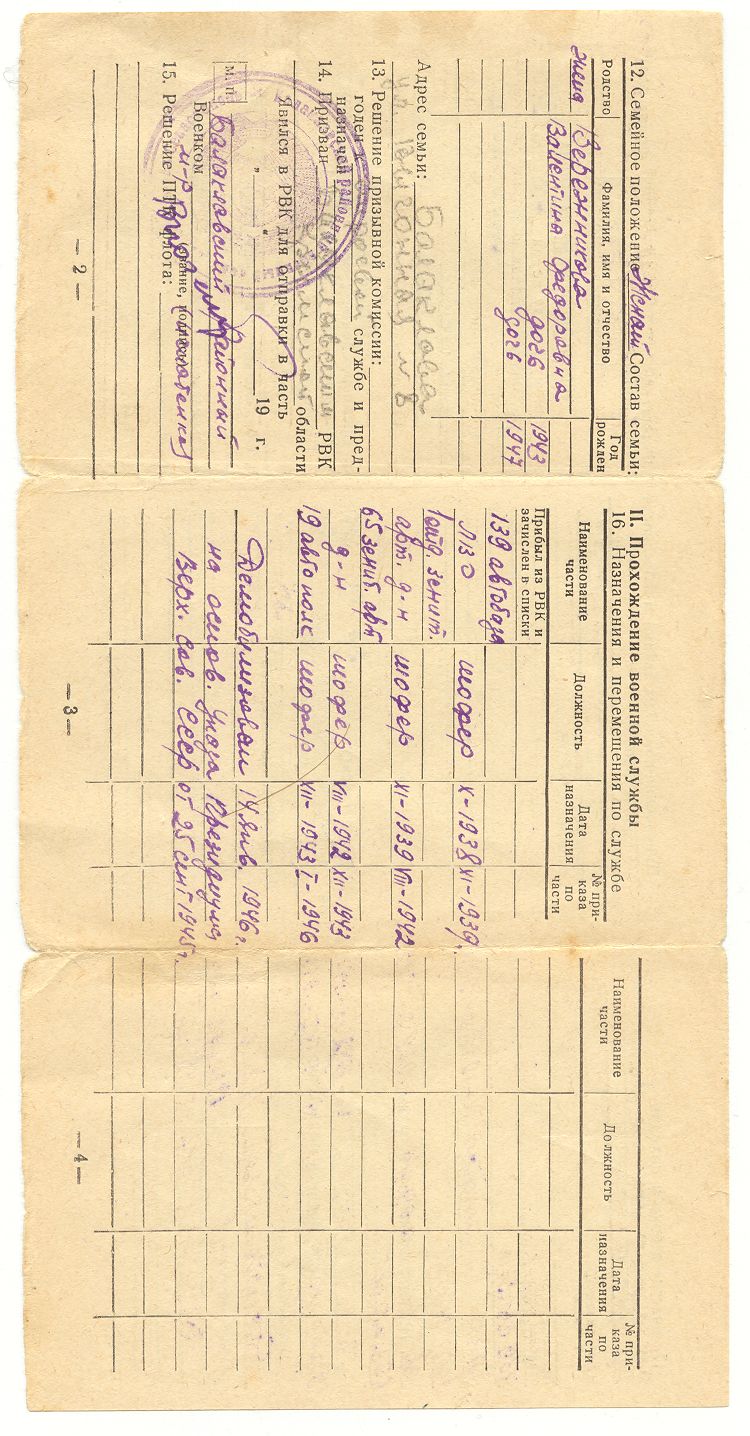 12. Семейное положение Женат Состав семьи:
Родство
Фамилия, имя и отчество
Год рожден
жена
Вережникова
Валентина Федоровна
дочь
1943
дочь
1947
Адрес семьи: Балаклава
ул. Выгонная № 8
13. Решение призывной комиссии:
годен к строевой службе и пред-
назначен
14. Призван Балаклавским РВК
Крымской области
Явился в РВК для отправки в часть
„ “ 19 г.
М. п. Балаклавский Районный
Военком
м-р
15. Решение
— 2 —
II. Прохождение военной службы
16. Назначения и перемещения по службе
Наименование части
Должность
Дата назначения
№ при-каза по части
Прибыл из РВК и
зачислен в списки
139 автобаза
ЛЗО шофер X-1938 XI-1939.
1 отд. зенит.
арт. д-н шофер XI-1939 VIII-1942
65 зенит. арт
д-н шофер VIII-1942 XII-1943
19 автополк шофер XII-1943 I-1946
Демобилизован 14 янв. 1946 г.
на основ. Указа Президиума
Верх. Сов. СССР от 25 сент 1945 г.
— 3 —
Наименование части
Должность
Дата назначения
№ при-каза по части
— 4 —